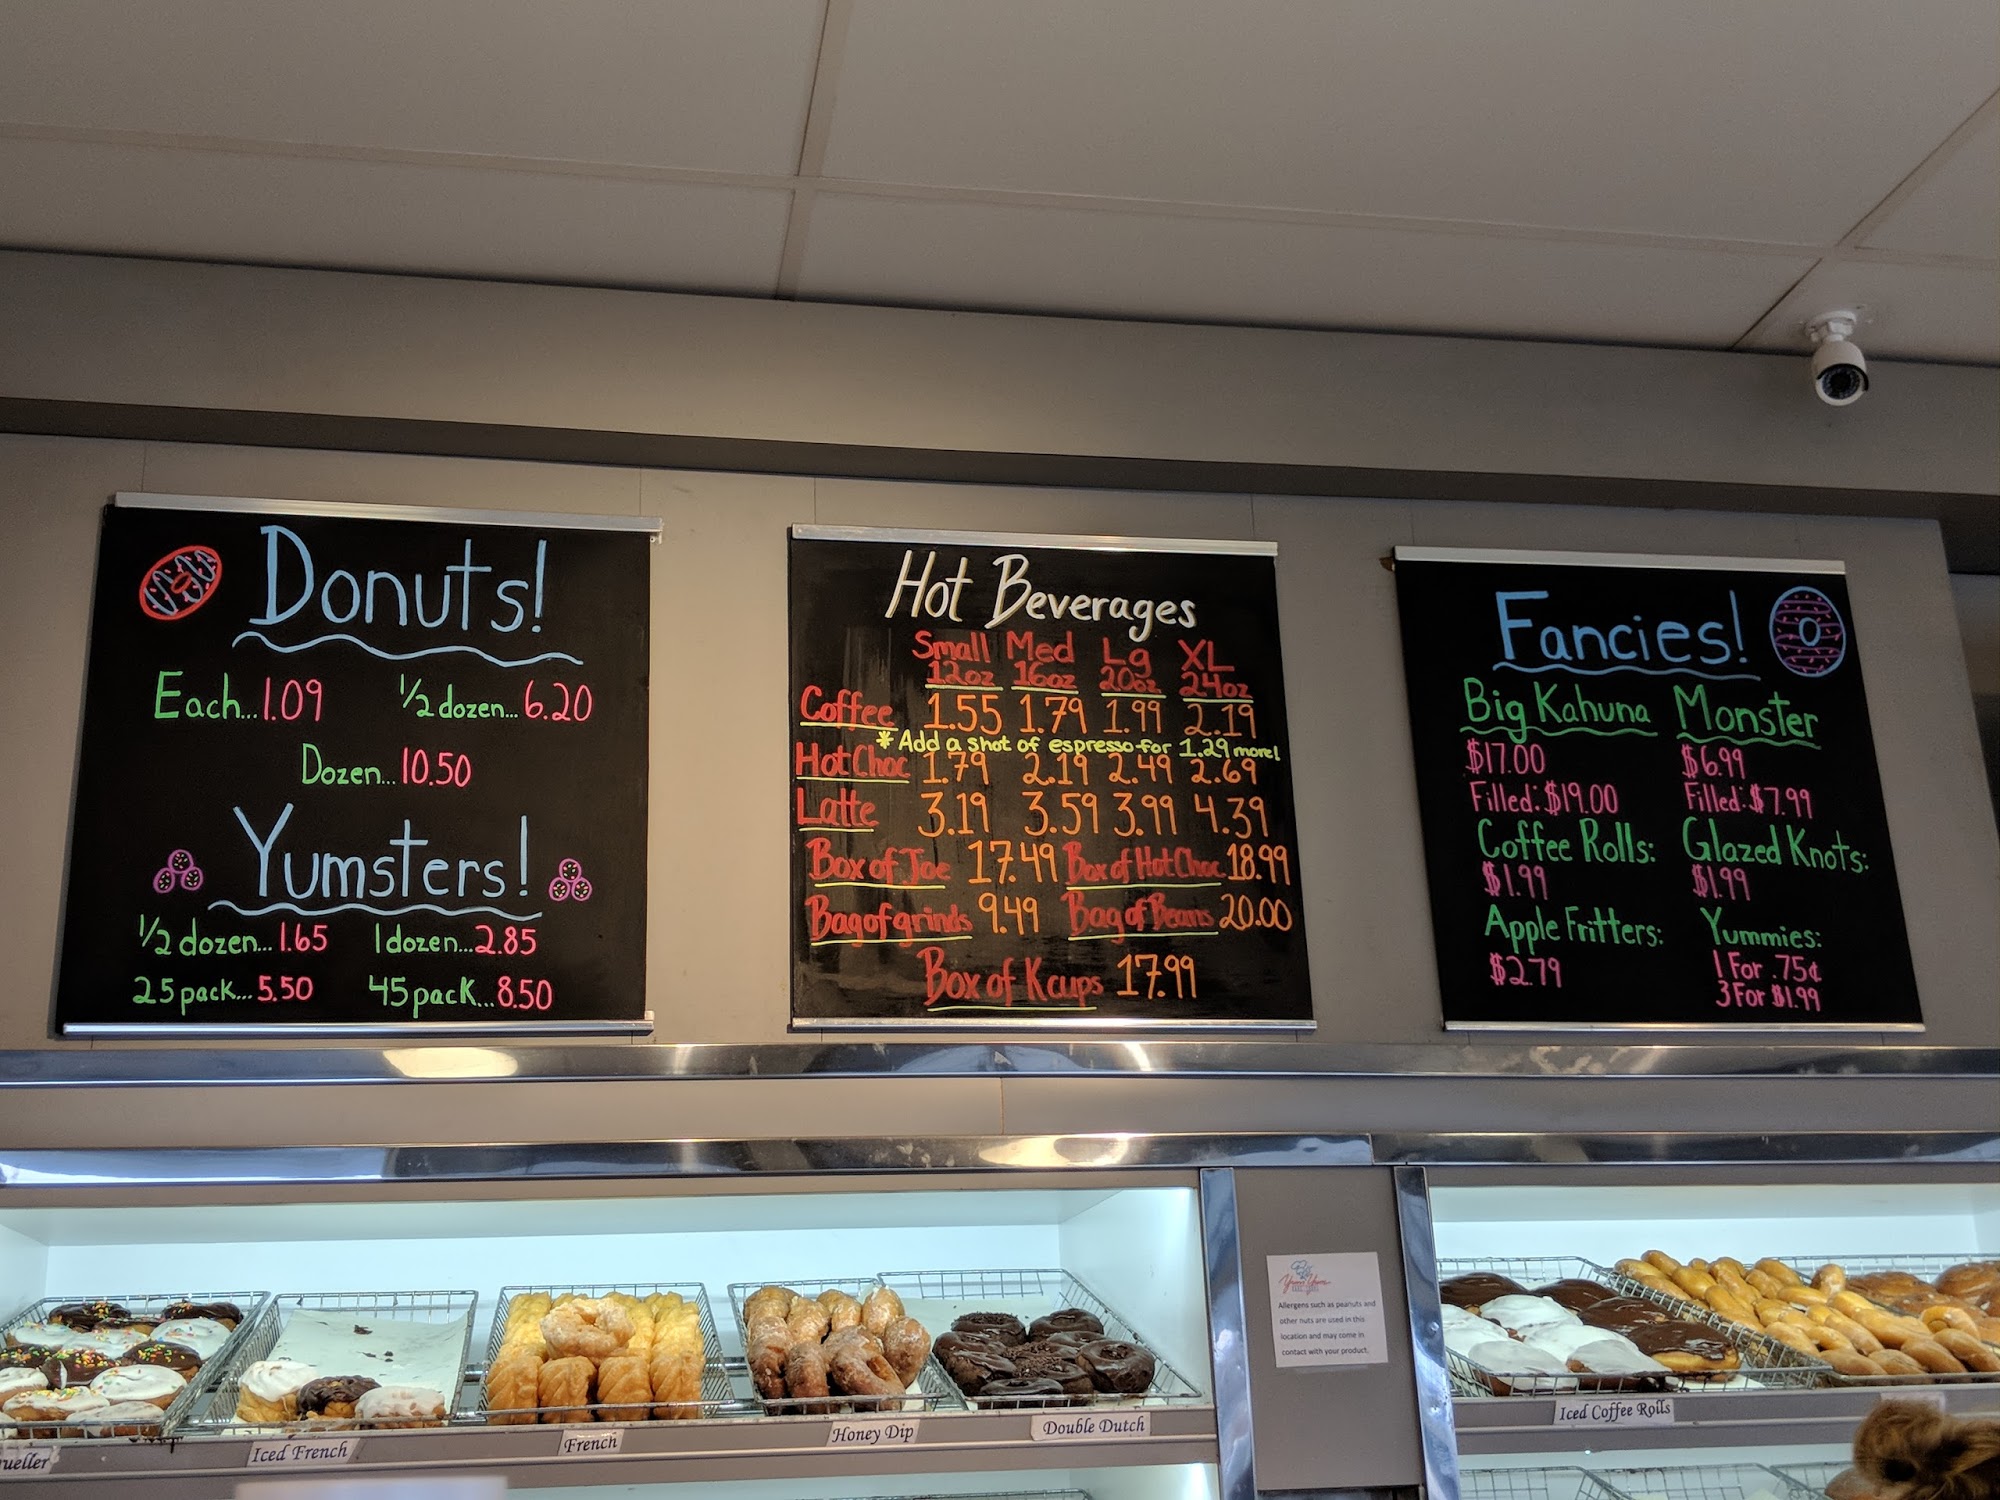 Donuts!
Each...1.09 1/2 dozen...6.20
Dozen...10.50
Yumsters!
1/2 dozen...1.65 1 dozen...2.85
25 pack...5.50 45 pack...8.50
Hot Beverages
Small Med Lg XL
12oz 16oz 20oz 24oz
Coffee 1.55 1.79 1.99 2.19
* Add a shot of espresso for 1.29 more!
Hot Choc 1.79 2.19 2.49 2.69
Latte 3.19 3.59 3.99 4.39
Box of Joe 17.49 Box of Hot Choc 18.99
Bag of grinds 9.49 Bag of Beans 20.00
Box of Kcups 17.99
Fancies!
Big Kahuna Monster
$17.00 $6.99
Filled: $19.00 Filled: $7.99
Coffee Rolls: Glazed Knots:
$1.99 $1.99
Apple Fritters: Yummies:
$2.79 1 For .75¢
3 For $1.99
Yum Yum
Allergens such as peanuts and
other nuts are used in this
location and may come in
contact with your product.
ueller
Iced French
French
Honey Dip
Double Dutch
Iced Coffee Rolls